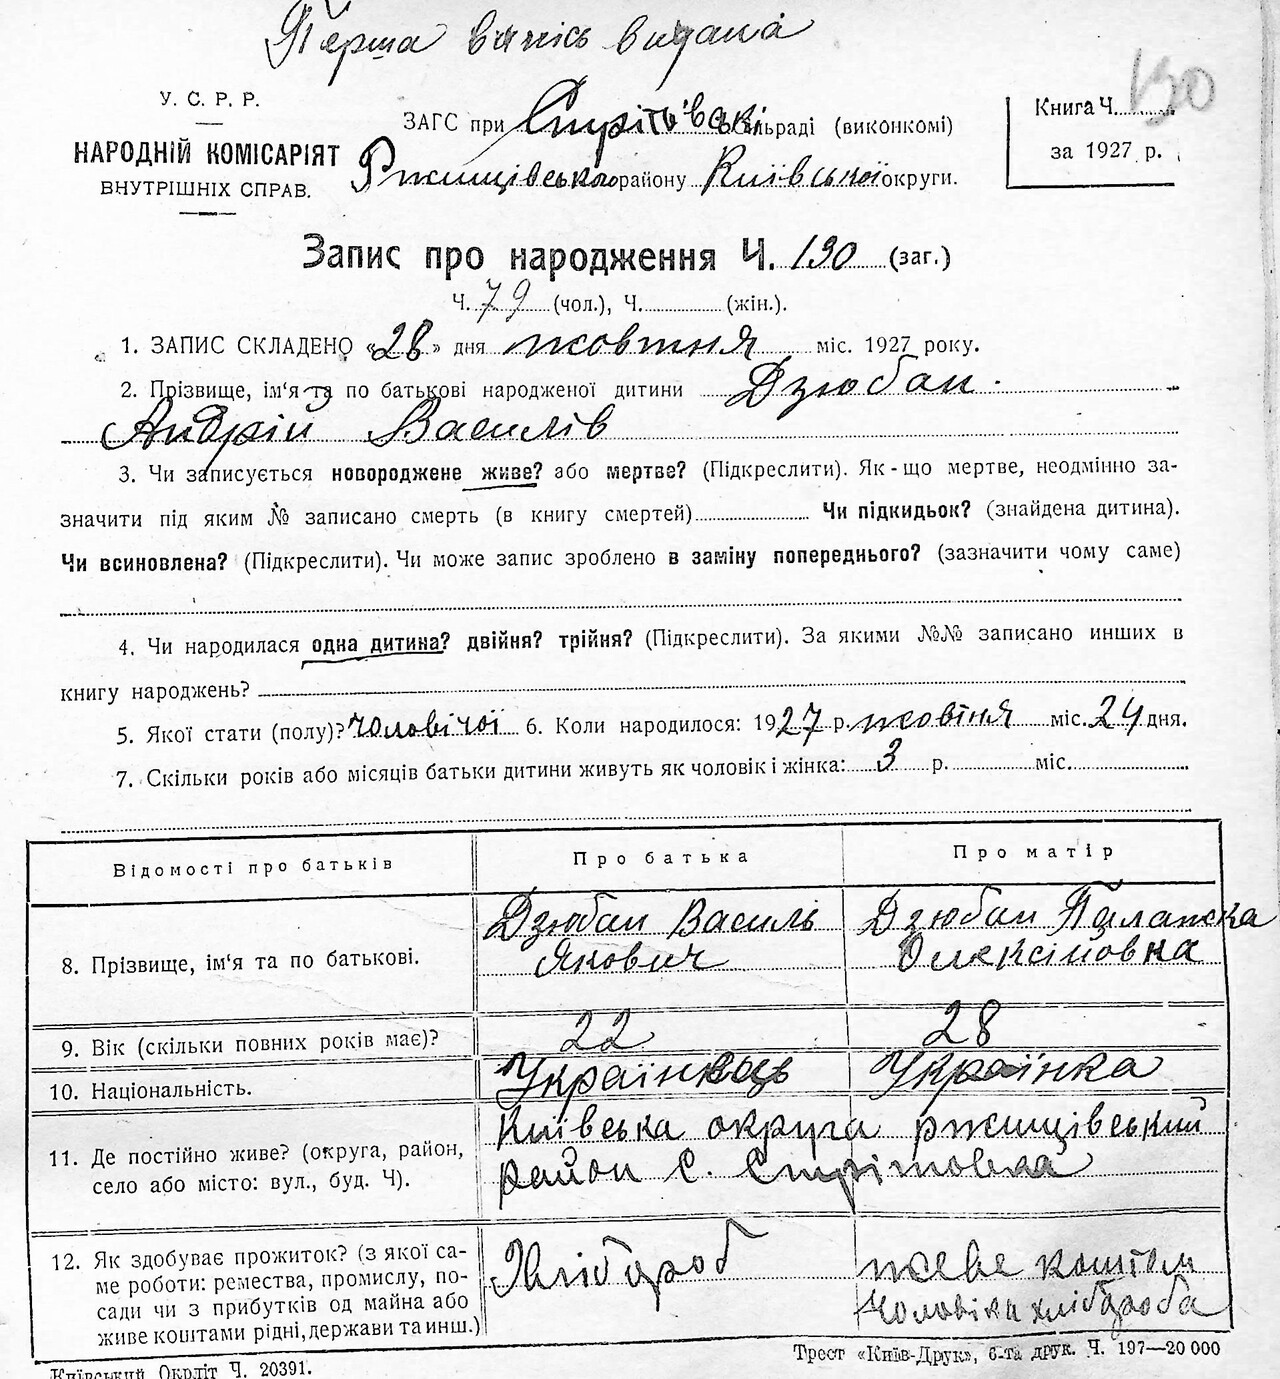 Перша випись видана
190
У. С. Р. Р.
НАРОДНІЙ КОМІСАРІЯТ
ВНУТРІШНІХ СПРАВ.
ЗАГС при Стрітівській сільраді (виконкомі)
Ржищівського району Київської округи.
Книга Ч.
за 1927 р.
Запис про народження Ч. 190 (заг.)
Ч. 79 (чол.), Ч. (жін.).
1. ЗАПИС СКЛАДЕНО «28» дня жовтня міс. 1927 року.
2. Прізвище, ім'я та по батькові народженої дитини Дзюбан
Андрій Василів
3. Чи записується новороджене живе? або мертве? (Підкреслити). Як-що мертве, неодмінно за-
значити під яким № записано смерть (в книгу смертей) Чи підкидьок? (знайдена дитина).
Чи всиновлена? (Підкреслити). Чи може запис зроблено в заміну попереднього? (зазначити чому саме)
4. Чи народилася одна дитина? двійня? трійня? (Підкреслити). За якими №№ записано инших в
книгу народжень?
5. Якої стати (полу)? чоловічої 6. Коли народилося: 1927 р. жовтня міс. 24 дня.
7. Скільки років або місяців батьки дитини живуть як чоловік і жінка: 3 р. міс.
Відомості про батьків Про батька Про матір
8. Прізвище, ім'я та по батькові. Дзюбан Василь Якович Дзюбан Палажка Олексійовка
9. Вік (скільки повних років має)? 22 28
10. Національність. Українець Українка
11. Де постійно живе? (округа, район,
село або місто: вул., буд. Ч).
Київська округа ржищівський
район с. Стрітовка
12. Як здобуває прожиток? (з якої са-
ме роботи: ремества, промислу, по-
сади чи з прибутків од майна або
живе коштами рідні, держави та инш.)
Хлібороб
живе коштом
чоловіка хлібороба
Київський Окрліт Ч. 20391.
Трест «Київ-Друк», 6-та друк. Ч. 197—20 000